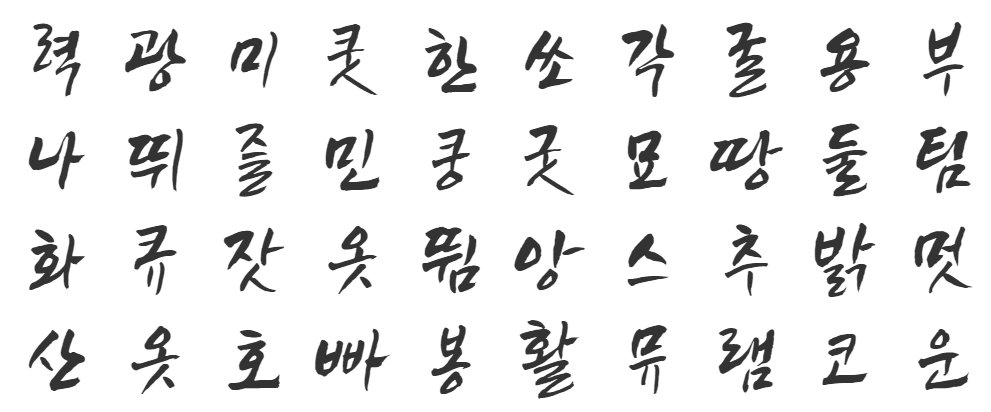 력 광 미 쿳 한 쏘 각 굴 용 부
나 뛰 즐 민 쿵 굿 묘 땅 둘 팀
화 큐 잣 옷 뜀 앙 스 추 밝 멋
산 옷 호 빠 봉 활 뮤 램 코 운